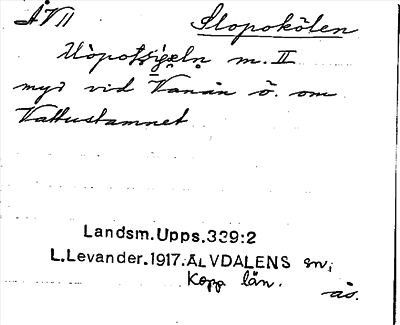 ÅVII Slopokölen
m. II
myr vid Vanån ö. om
Vattustamnet
Landsm.Upps.339:2
L.Levander.1917.ÄLVDALENS sn,
Kopp län.
ås.